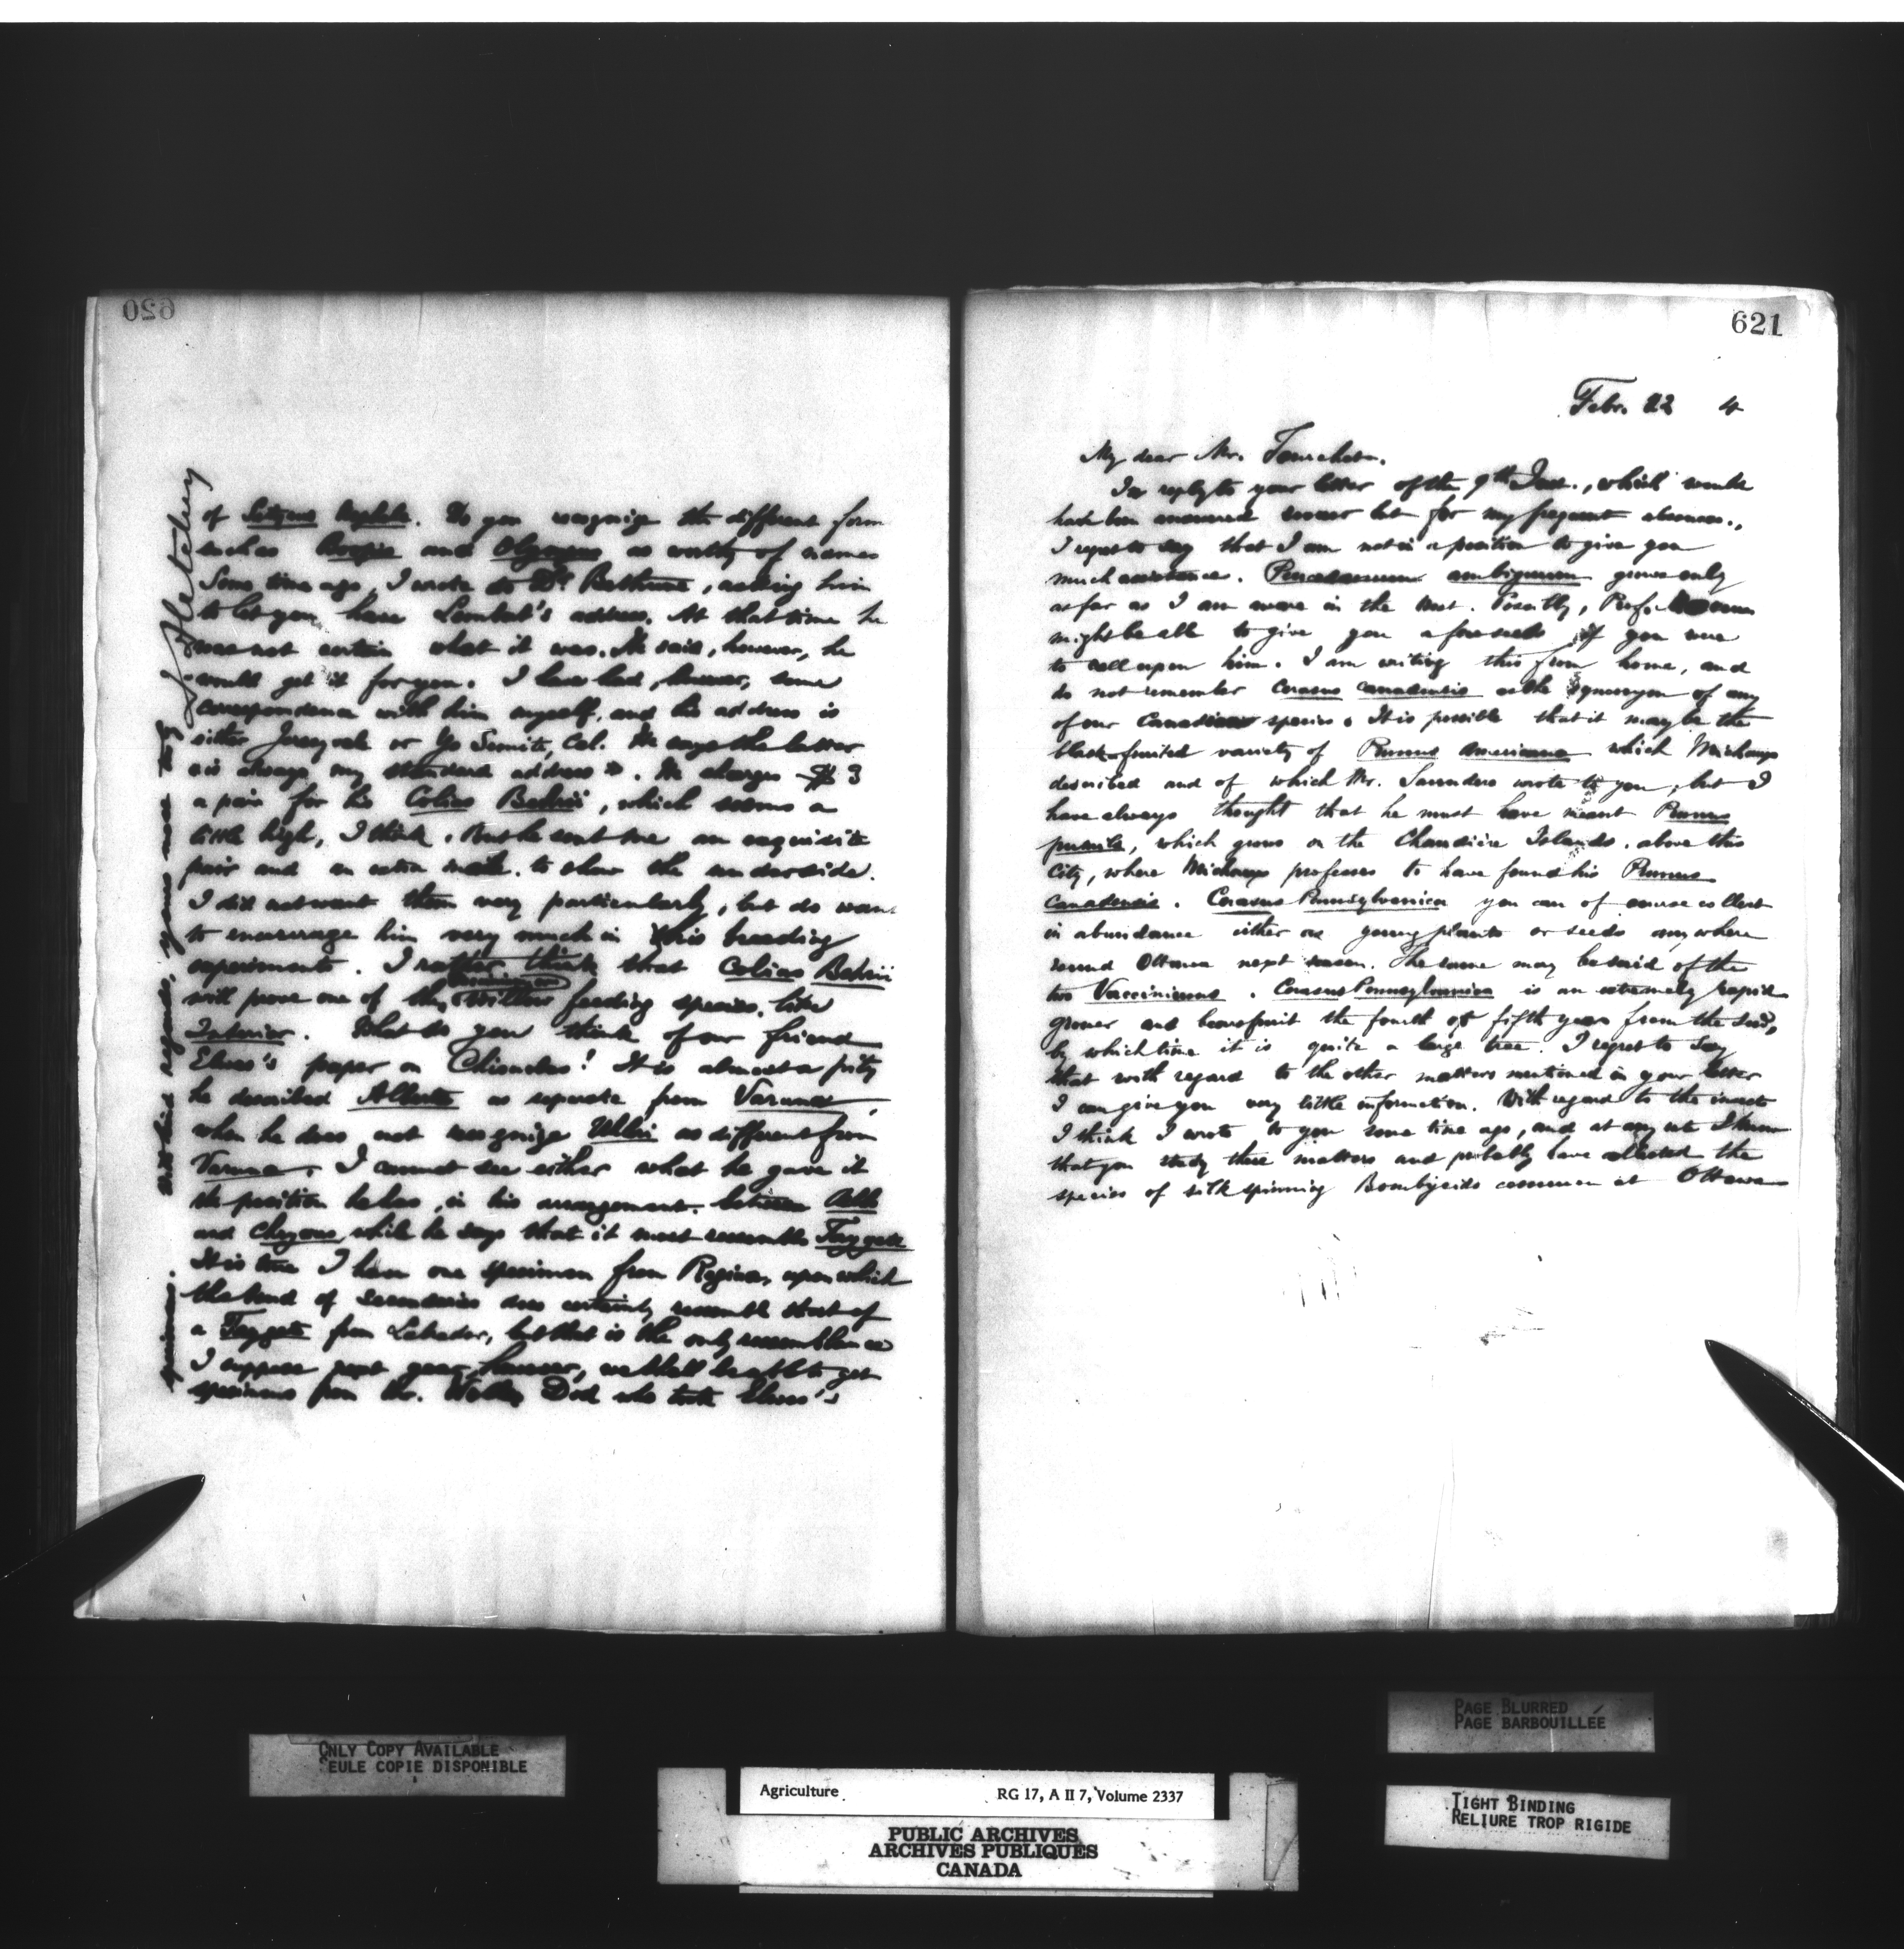 620
of Satyrus Do you recognize the different form
such as and Olympus as worthy of names
Some time ago, I wrote to Dr. Bethune, asking him
to let you have Lembert's address. At that time he
was not certain what it was. He said, however, he
would get it for you. I have had, however, some
correspondence with him myself, and his address is
either or Yo Semite, Cal. He says the latter
"is always my standard address". He charges $3
a pair for his Colias Behrii, which seems a
little high, I think. But he sent me an exquisite
pair and an extra male to show the underside.
I did not want them very particularly, but do want
to encourage him very much in this breeding
experiments. I rather think that Colias Behrii
will prove one of the willow feeding species, like
Interior. What do you think of our friend
Elwes's paper on Chionobas! It is almost a pity
he described Alberta as separate from Varuna,
when he does not recognize Uhleri as different from
Varuna. I cannot see either what he gave it
the position he has, in his arrangement between
and Chryxus while he says that it most resembles Taygete
It is true I have one specimen from Regina, upon which
the band of secondaries does certainly resemble that of
a Taygete from Labrador, but that is the only resemblance
I suppose next year, however, we shall be able to get
specimens from Mr. Wolley Dod who took Elwes's
specimens.
With kind regards, yours very truly
J. Fletcher
621
Febr. 22 4
My dear Mr.
In reply to your letter of the 9th Inst., which would
have been answered sooner but for my frequent absences,
I regret to say that I am not in a position to give you
much assistance. Peucedanum ambiguum grows only
as far as I am aware in the West. Possibly, Prof. Macoun
might be able to give you a few seeds if you were
to call upon him. I am writing this from home, and
do not remember Cerasus canadensis as the synonym of any
of our Canadian species. It is possible that it may be the
black-fruited variety of Prunus Americana which Michaux
described and of which Mr. Saunders wrote to you, but I
have always thought that he must have meant Prunus
pumila, which grows on the Chaudière Islands, above this
City, where Michaux professes to have found his Prunus
canadensis. Cerasus Pennsylvanica you can of course collect
in abundance either as young plants or seeds anywhere
round Ottawa next season. The same may be said of the
two Vacciniums. Cerasus Pennsylvanica is an extremely rapid
grower and bears fruit the fourth or fifth year from the seed,
by which time it is quite a large tree. I regret to say
that with regard to the other matters mentioned in your letter
I can give you very little information. With regard to the insects
I think I wrote to you some time ago, and at any rate I know
that you study these matters and probably have collected the
species of silk spinning Bombycids common at Ottawa
ONLY COPY AVAILABLE
SEULE COPIE DISPONIBLE
PAGE BLURRED
PAGE BARBOUILLÉE
TIGHT BINDING
RELIURE TROP RIGIDE
Agriculture RG 17, A II 7, Volume 2337
PUBLIC ARCHIVES
ARCHIVES PUBLIQUES
CANADA